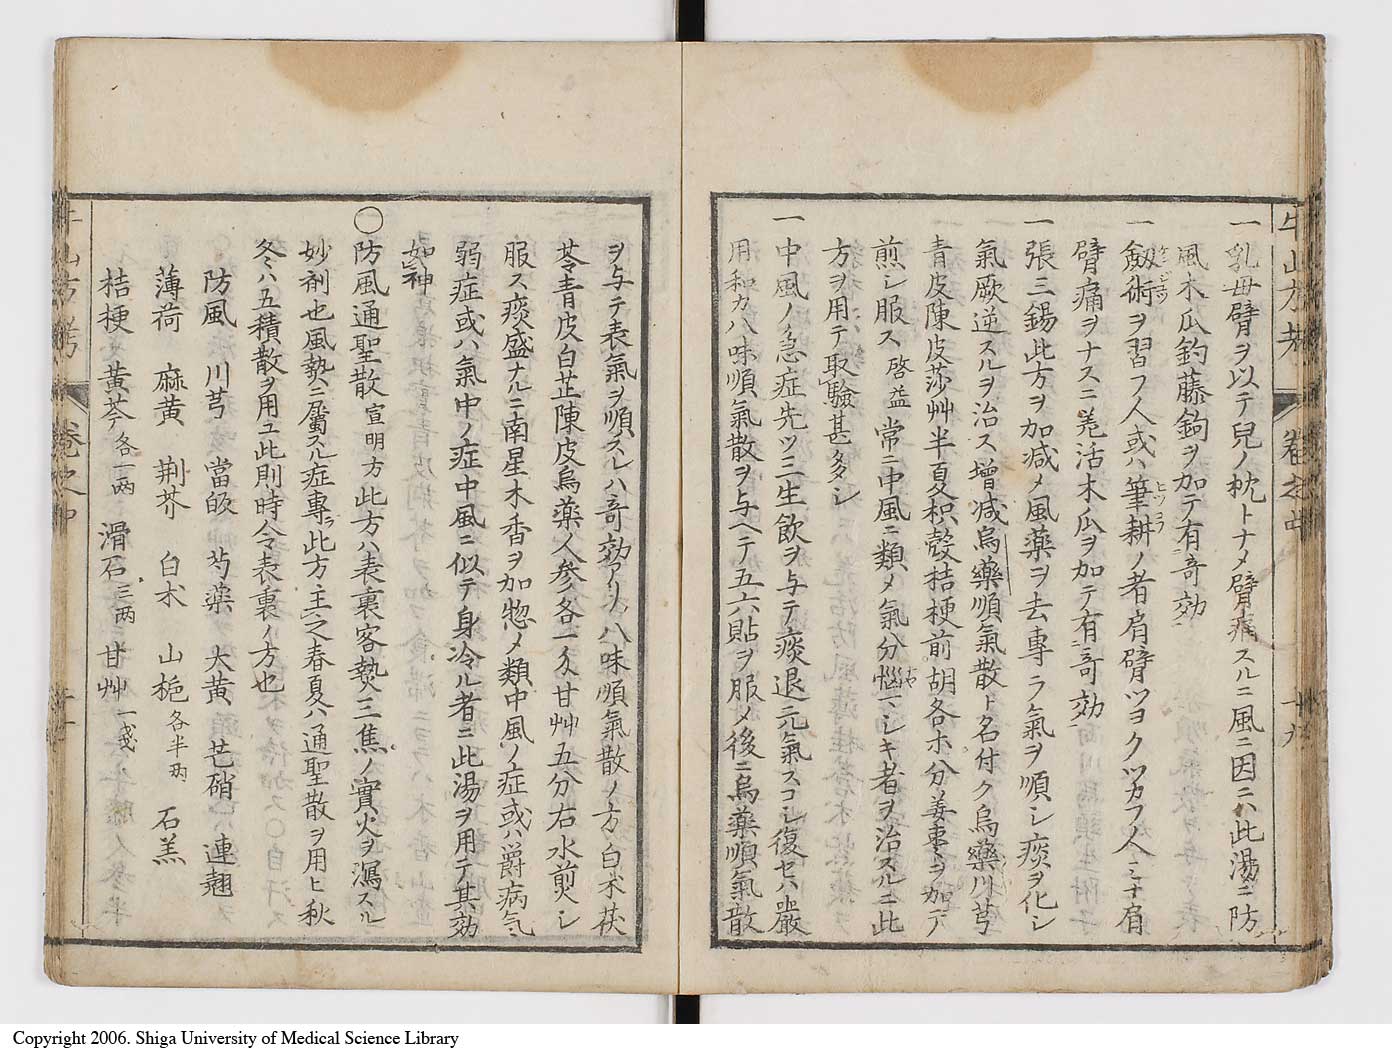 牛山方考 卷之中 十九
一乳母臂ヲ以テ兒ノ枕トナメ臂痛スルニ風ニ因ニハ此湯ニ防
風木瓜釣藤鉤ヲ加テ有奇効
一劔術ヲ習フ人或ハ筆耕ノ者肩臂ツヨクツカフ人ミナ肩
臂痛ヲナスニ羗活木瓜ヲ加テ有奇効
一張三錫此方ヲ加减メ風藥ヲ去專ラ氣ヲ順シ痰ヲ化シ
氣厥逆スルヲ治ス增减烏藥順氣散ト名付ク烏藥川芎
青皮陳皮莎艸半夏枳殼桔梗前胡各ホ分姜棗ヲ加テ
煎シ服ス啓益常ニ中風ニ類メ氣分惱マシキ者ヲ治スルニ此
方ヲ用テ取驗甚多シ
一中風ノ急症先ツ三生飮ヲ与テ痰退元氣スコシ復セハ嚴
用和カ八味順氣散ヲ与ヘテ五六貼ヲ服メ後ニ烏藥順氣散
ヲ与テ表氣ヲ順スレハ奇効アリ八味順氣散ノ方白朮茯
苓青皮白芷陳皮烏藥人參各一分甘艸五分右水煎シ
服ス痰盛ナルニ南星木香ヲ加惣メ類中風ノ症或ハ欝病気
弱症或ハ氣中ノ症中風ニ似テ身冷ル者ニ此湯ヲ用テ其効
如神
○防風通聖散宣明方此方ハ表裏客熱三焦ノ實火ヲ瀉スル
妙剤也風熱ニ屬スル症專ラ此方主之春夏ハ通聖散ヲ用ヒ秋
冬ハ五積散ヲ用ユ此則時令表裏ノ方也
防風 川芎 當皈 芍藥 大黄 芒硝 連翹
薄荷 麻黄 荆芥 白朮 山梔各半兩 石羔
桔梗 黄芩各一兩 滑石三兩 甘艸一戔
牛山方考 卷之中
Copyright 2006. Shiga University of Medical Science Library